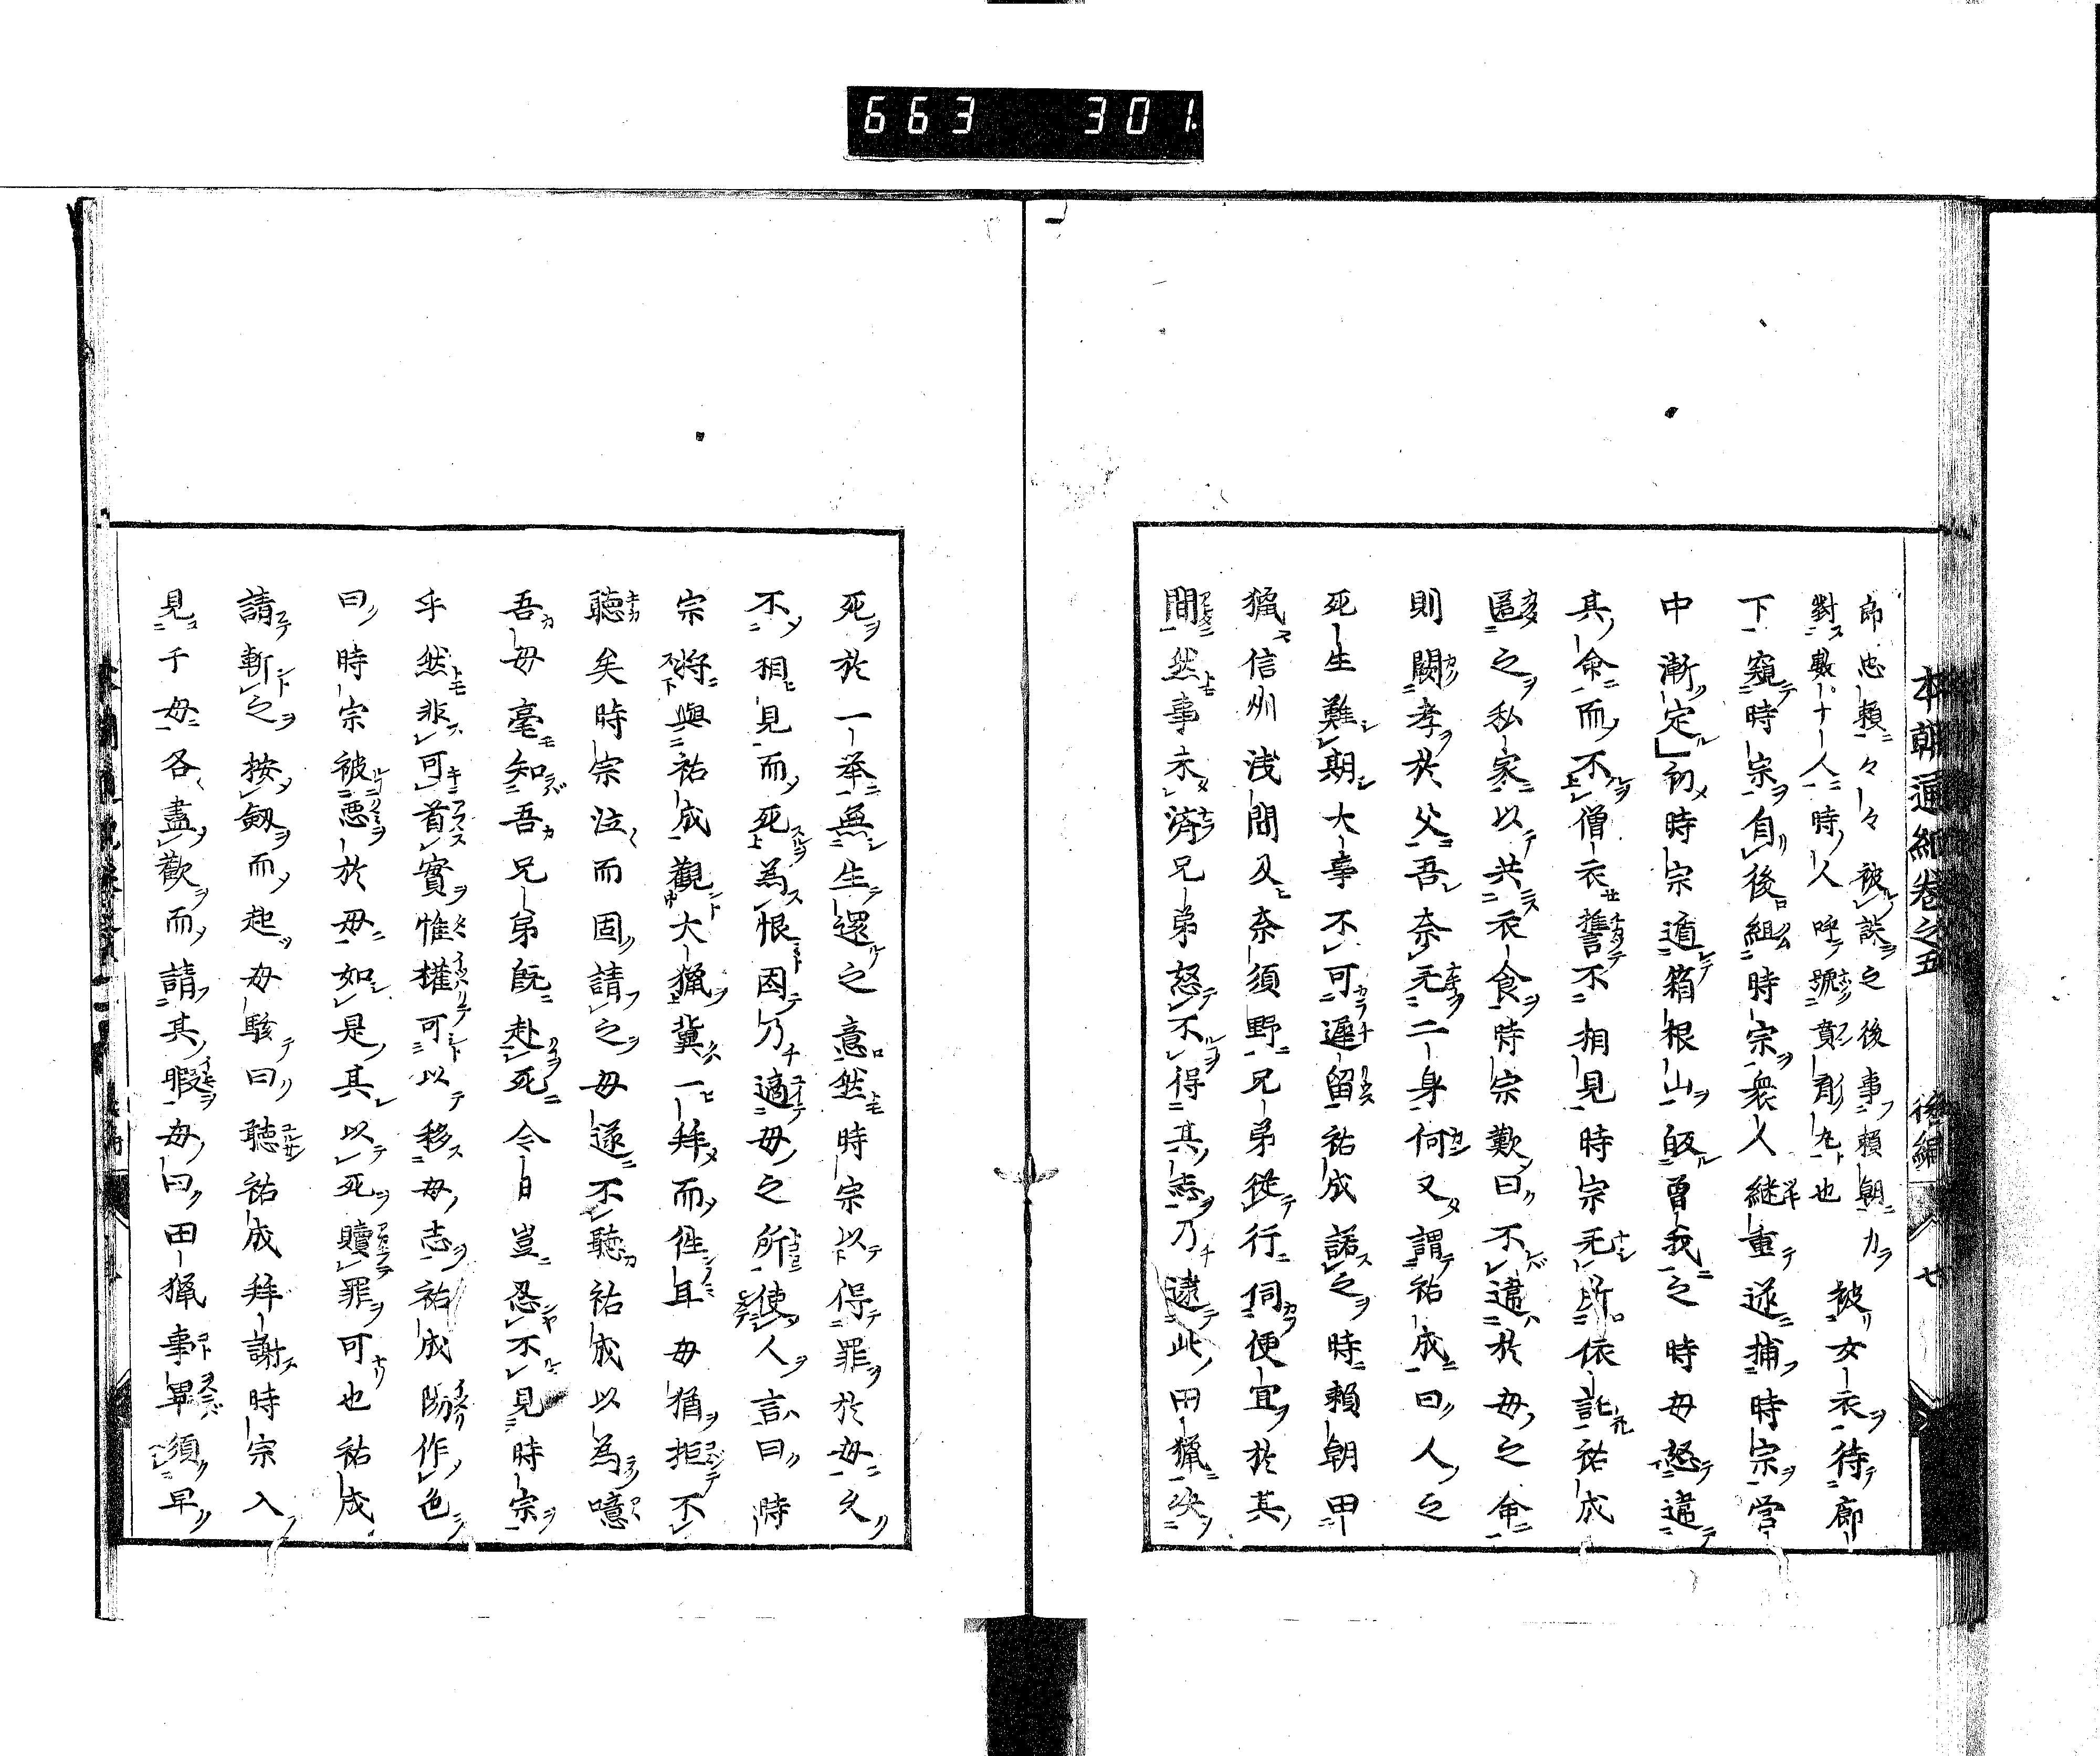 663 301
本朝通紀卷之五 後編 七
郎忠頼々々々被誅之後事頼朝力
對數十人時人呼號賁彪九也
被女衣待廊
下窺時宗自後組時宗衆人継重遂捕時宗營
中漸定初時宗遁箱根山皈曽我之時母怒違
其命而不僧衣誓不相見時宗无所依託祐成
匿之私家以共衣食時宗歎曰不違於母之命
則闕孝於父吾奈无二身何又謂祐成曰人之
死生難期大事不可遲留祐成諾之時頼朝田
獵信州浅間及奈須野兄弟從行伺便宜於其
間然事未濟兄弟怒不得其志乃逮此田獵决
死於一挙無生還之意然時宗以得罪於母久
不相見而死為恨因乃適母之所使人言曰時
宗將與祐成觀大獵冀一拜而徃耳母猶拒不
聴矣時宗泣而固請之母遂不聴祐成以為噫
吾母毫知吾兄弟既赴死今日豈忍不見時宗
乎然非可首實惟權可以移母志祐成陽作色
曰時宗被悪於母如是其以死贖罪可也祐成
請斬之按劔而起母駭曰聴祐成拜謝時宗入
見于母各盡歡而請其暇母曰田獵事畢須早